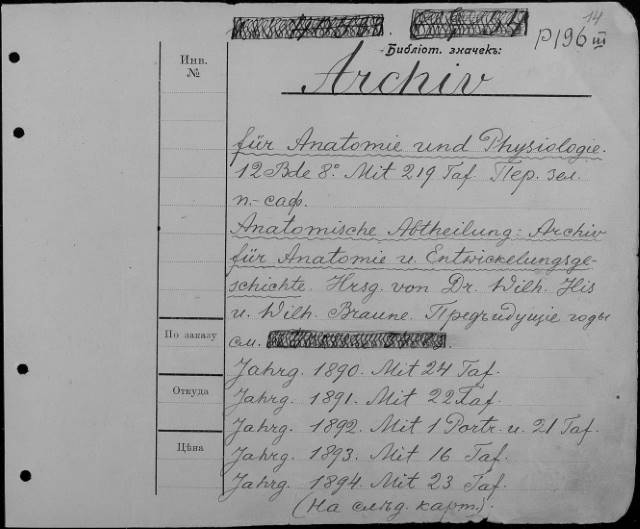 14
P196 III
Библіот. значекъ:
Инв.
№
Archiv
für Anatomie und Physiologie.
12 Bde 8° Mit 219 Taf Пер. зел.
п.-саф.
Anatomische Abtheilung: Archiv
für Anatomie u. Entwickelungsge-
schichte. Hrsg. von Dr. Wilh. His
u. Wilh. Braune. Предъидущіе годы
см.
По заказу
Jahrg. 1890. Mit 24 Taf.
Откуда
Jahrg. 1891. Mit 22 Taf.
Jahrg. 1892. Mit 1 Portr. u. 21 Taf.
Цѣна
Jahrg. 1893. Mit 16 Taf.
Jahrg. 1894. Mit 23 Taf.
(На слѣд. карт.).